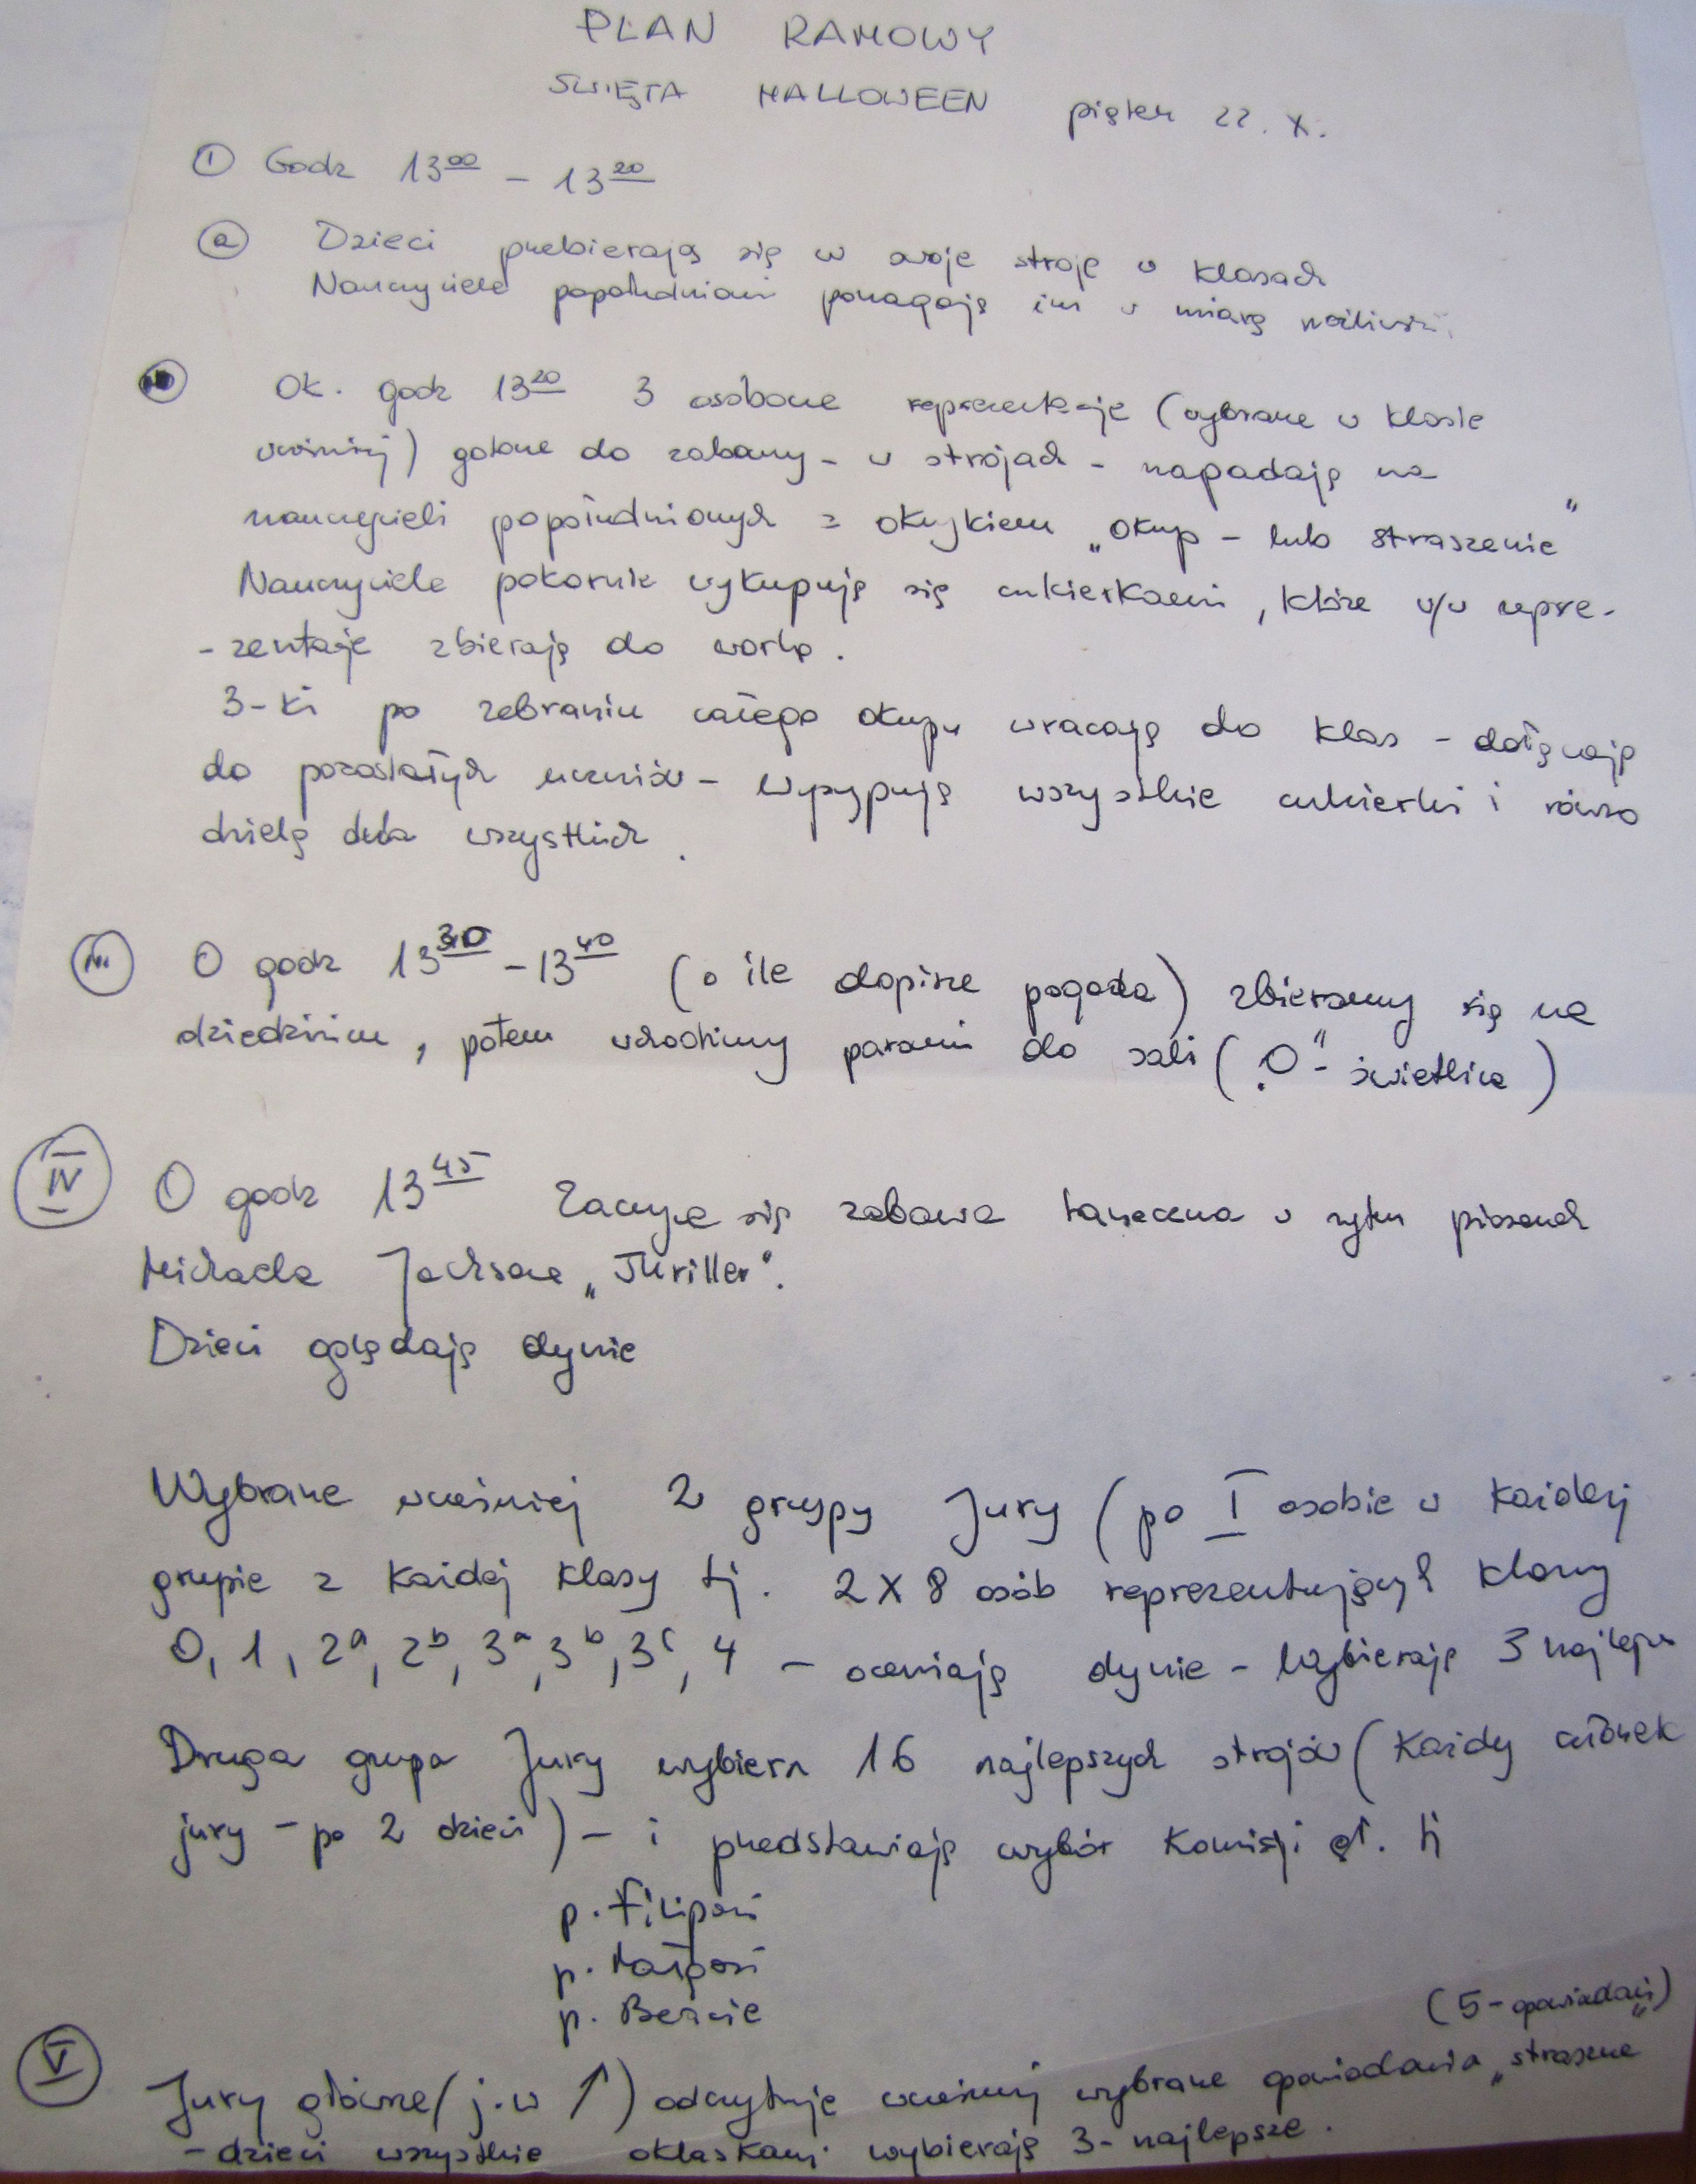 PLAN RAMOWY
ŚWIĘTA HALLOWEEN piątek 22. X.
① Godz 13⁰⁰ – 13²⁰
ⓐ Dzieci przebierają się w swoje stroje w klasach
Nauczyciele popołudniowi pomagają im w miarę możliwości.
Ok. godz 13²⁰ 3 osobowe reprezentacje (wybrane w klasie
wcześniej) gotowe do zabawy – w strojach – napadają na
nauczycieli popołudniowych z okrzykiem „Okup – lub straszenie”
Nauczyciele pokornie wykupują się cukierkami, które w/w repre-
-zentacje zbierają do worka.
3-ki po zebraniu całego okupu wracają do klas – dołączają
do pozostałych uczniów – wysypują wszystkie cukierki i równo
dzielą dla wszystkich.
III O godz 13³⁰ – 13⁴⁰ (o ile dopisze pogoda) zbieramy się na
dziedzińcu, potem wchodzimy parami do sali („O” – świetlica)
IV O godz 13⁴⁵ Zacznie się zabawa taneczna w rytm piosenek
Michaela Jacksona „Thriller”.
Dzieci oglądają dynie
Wybrane wcześniej 2 grupy Jury (po I osobie w każdej
grupie z każdej klasy tj. 2 x 8 osób reprezentujących klasy
0, 1, 2ᵃ, 2ᵇ, 3ᵃ, 3ᵇ, 3ᶜ, 4 – oceniają dynie – Wybierają 3 najlepsze
Druga grupa Jury wybiera 16 najlepszych strojów (Każdy członek
jury – po 2 dzieci) – i przedstawiają wybór Komisji gł. tj
p. Filipowi
p. Małgosi
p. Beacie
(5 – opowiadań)
V Jury główne (j.w ↑) odczytuje wcześniej wybrane opowiadania „straszne”
– dzieci wszystkie oklaskami wybierają 3 – najlepsze.